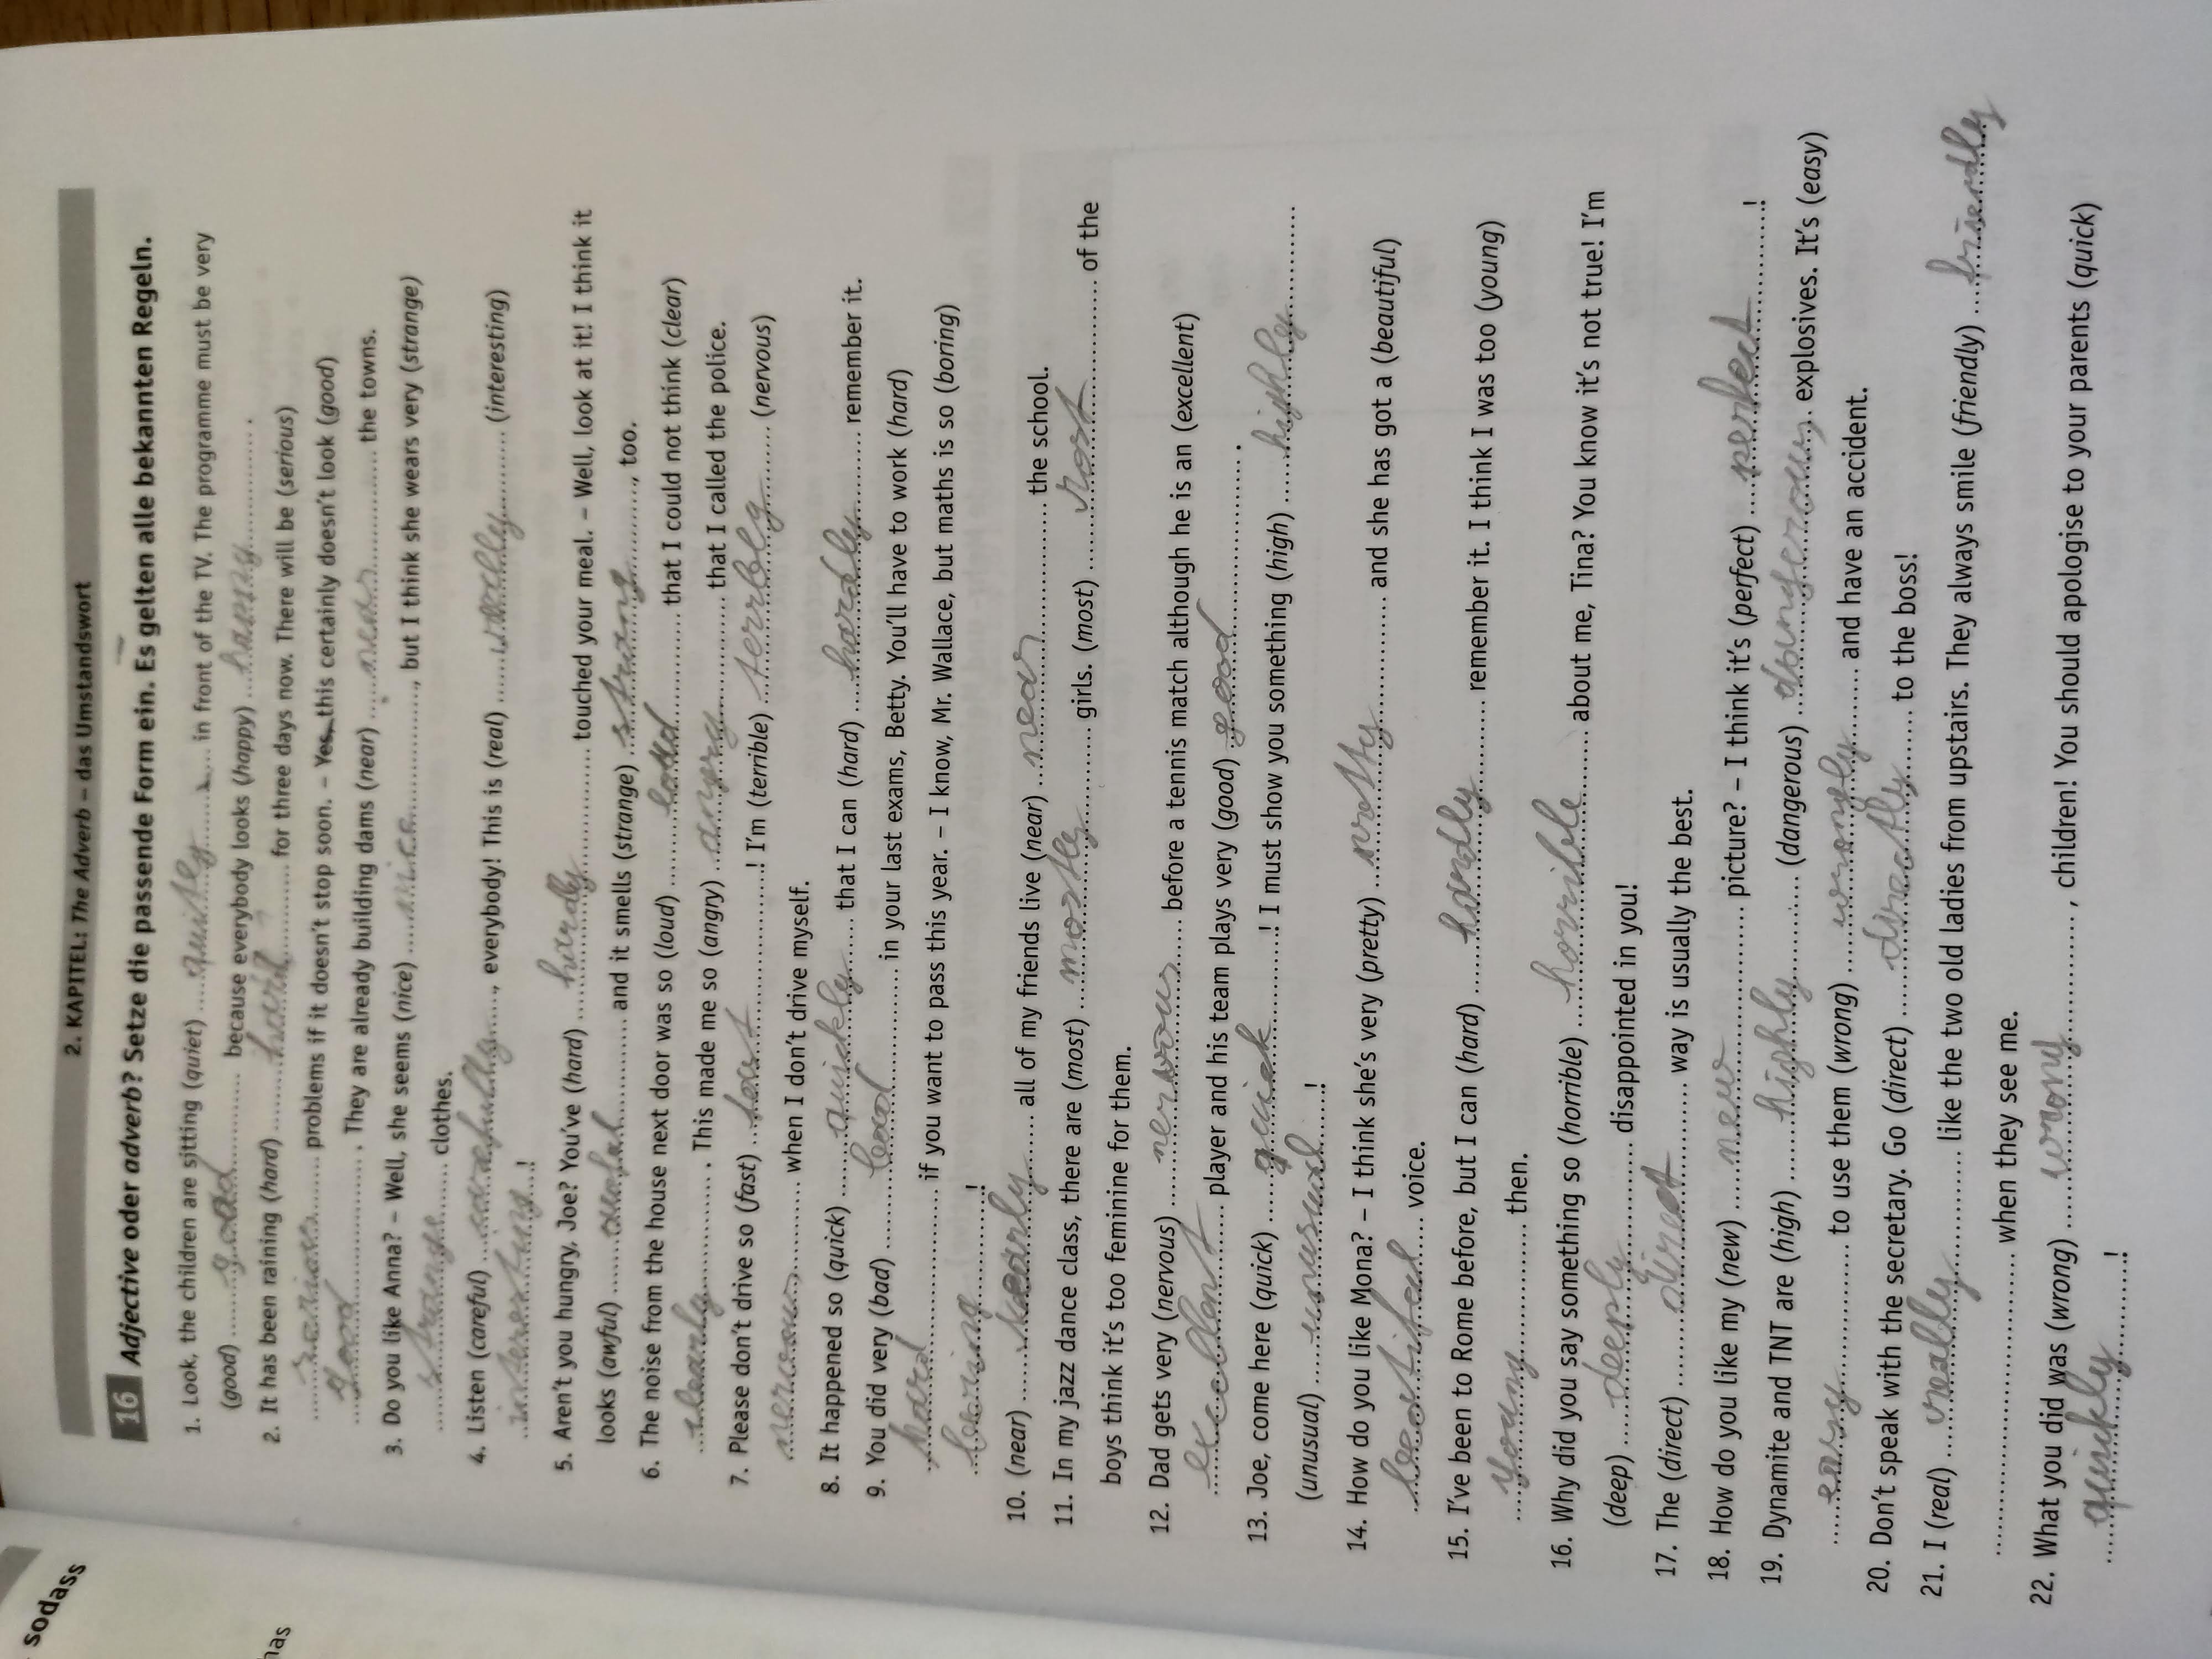 sodass
has
2. KAPITEL: The Adverb – das Umstandswort
16 Adjective oder adverb? Setze die passende Form ein. Es gelten alle bekannten Regeln.
1. Look, the children are sitting (quiet) quitly in front of the TV. The programme must be very
(good) good because everybody looks (happy) happy .
2. It has been raining (hard) hard for three days now. There will be (serious)
problems if it doesn't stop soon. – Yes, this certainly doesn't look (good)
good . They are already building dams (near) near the towns.
3. Do you like Anna? – Well, she seems (nice) nice , but I think she wears very (strange)
strange clothes.
4. Listen (careful) carefully , everybody! This is (real) really (interesting)
interesting !
5. Aren't you hungry, Joe? You've (hard) hardly touched your meal. – Well, look at it! I think it
looks (awful) awful and it smells (strange) strang , too.
6. The noise from the house next door was so (loud) loud that I could not think (clear)
clearly . This made me so (angry) angry that I called the police.
7. Please don't drive so (fast) fast ! I'm (terrible) terrbly (nervous)
nervous when I don't drive myself.
8. It happened so (quick) quickly that I can (hard) hardly remember it.
9. You did very (bad) bad in your last exams, Betty. You'll have to work (hard)
hard if you want to pass this year. – I know, Mr. Wallace, but maths is so (boring)
boring !
10. (near) nearly all of my friends live (near) near the school.
11. In my jazz dance class, there are (most) mostly girls. (most) of the
boys think it's too feminine for them.
12. Dad gets very (nervous) nervous before a tennis match although he is an (excellent)
excellent player and his team plays very (good) good .
13. Joe, come here (quick) quick ! I must show you something (high) highly
(unusual) unusual !
14. How do you like Mona? – I think she's very (pretty) pretty and she has got a (beautiful)
beatiful voice.
15. I've been to Rome before, but I can (hard) hardly remember it. I think I was too (young)
young then.
16. Why did you say something so (horrible) horrible about me, Tina? You know it's not true! I'm
(deep) deeply disappointed in you!
17. The (direct) direct way is usually the best.
18. How do you like my (new) new picture? – I think it's (perfect) perfect !
19. Dynamite and TNT are (high) highly (dangerous) dangerous explosives. It's (easy)
easy to use them (wrong) wrongly and have an accident.
20. Don't speak with the secretary. Go (direct) directly to the boss!
21. I (real) really like the two old ladies from upstairs. They always smile (friendly) friendly
when they see me.
22. What you did was (wrong) wrong , children! You should apologise to your parents (quick)
quickly !